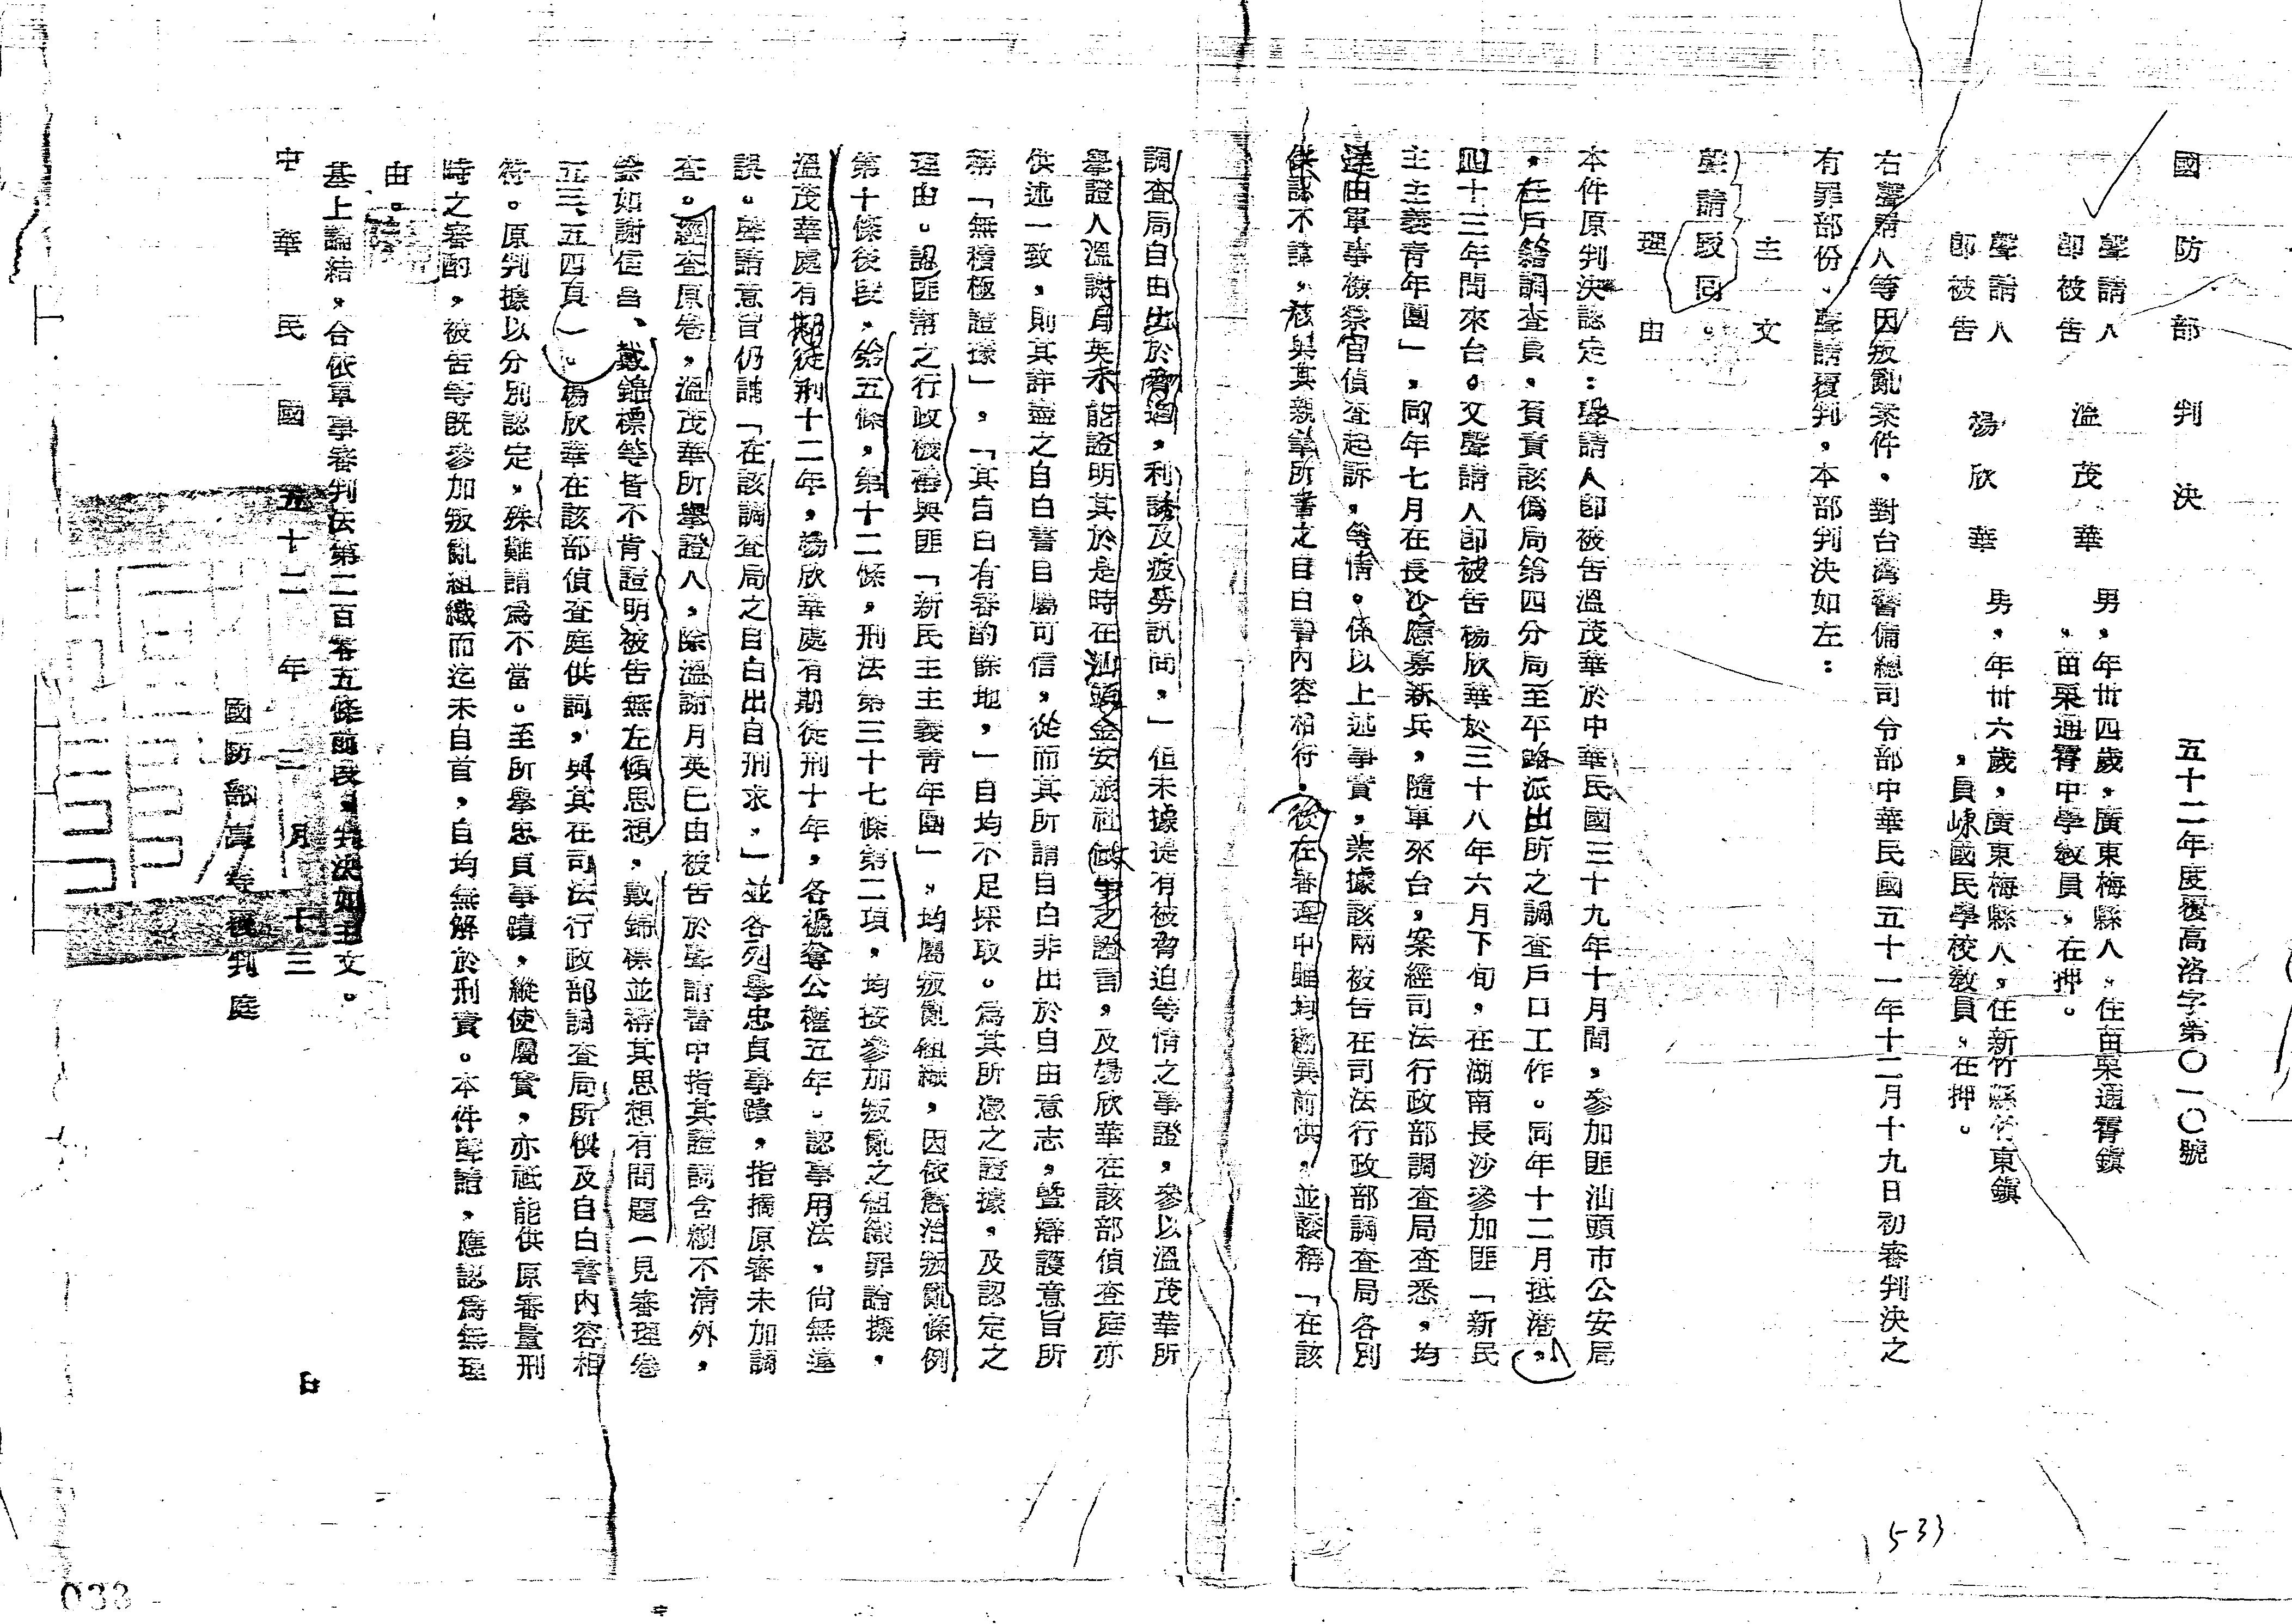 國防部判決
五十二年度覆高洛字第〇一〇號
聲請人
即被告
溫茂華
男,年卅四歲,廣東梅縣人,住苗栗通霄鎮
,苗栗通霄中學教員,在押。
聲請人
即被告
楊欣華
男,年卅六歲,廣東梅縣人,住新竹縣竹東鎮
,員崠國民學校教員,在押。
右聲請人等因叛亂案件,對台灣警備總司令部中華民國五十一年十二月十九日初審判決之
有罪部份,聲請覆判,本部判決如左:
主文
聲請駁回。
理由
本件原判決認定:聲請人即被告溫茂華於中華民國三十九年十月間,參加匪汕頭市公安局
,任戶籍調查員,負責該偽局第四分局至平路派出所之調查戶口工作。同年十二月抵港,
四十三年間來台。又聲請人即被告楊欣華於三十八年六月下旬,在湖南長沙參加匪「新民
主主義青年團」,同年七月在長沙應募新兵,隨軍來台,案經司法行政部調查局查悉,均
逕由軍事檢察官偵查起訴,等情。係以上述事實,業據該兩被告在司法行政部調查局各別
供認不諱,核與其親筆所書之自白書內容相符,後在審理中雖均翻異前供,並諉稱「在該
調查局自由出於脅迫,利誘及疲勞訊問,」但未據提有被脅迫等情之事證,參以溫茂華所
舉證人溫謝月英未能證明其於是時在汕頭金安旅社做事之證言,及楊欣華在該部偵查庭亦
供述一致,則其詳盡之自白書自屬可信,從而其所謂自白非出於自由意志,暨辯護意旨所
稱「無積極證據」,「其自白有審酌餘地,」自均不足採取。為其所憑之證據,及認定之
理由。認匪幫之行政機構與匪「新民主主義青年團」,均屬叛亂組織,因依懲治叛亂條例
第十條後段,第五條,第十二條,刑法第三十七條第二項,均按參加叛亂之組織罪論擬,
溫茂華處有期徒刑十二年,楊欣華處有期徒刑十年,各褫奪公權五年。認事用法,尚無違
誤。聲請意旨仍謂「在該調查局之自白出自刑求,」並各列舉忠貞事蹟,指摘原審未加調
查。經查原卷,溫茂華所舉證人,除溫謝月英已由被告於聲請書中指其證詞含糊不清外,
餘如謝信昌、戴錦標等皆不肯證明被告無左傾思想,戴錦標並稱其思想有問題(見審理卷
五三、五四頁)。楊欣華在該部偵查庭供詞,與其在司法行政部調查局所供及自白書內容相
符。原判據以分別認定,殊難謂為不當。至所舉忠貞事蹟,縱使屬實,亦祇能供原審量刑
時之審酌,被告等既參加叛亂組織而迄未自首,自均無解於刑責。本件聲請,應認為無理
由。
基上論結,合依軍事審判法第二百零五條前段,判決如主文。
中華民國五十二年二月十三日
國防部高等覆判庭
533
033